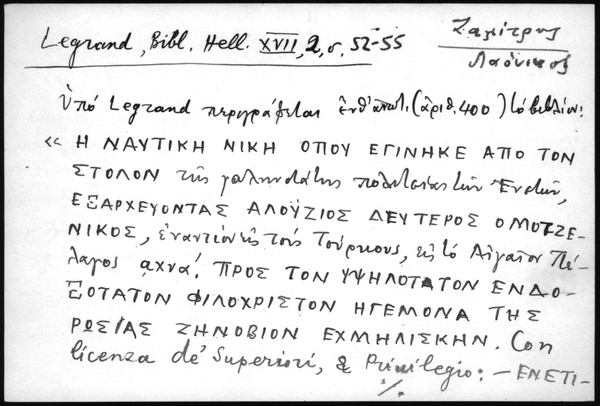 Legrand, Bibl. Hell. XVII, 2, σ. 52-55
Λαόνικος
Ὑπό Legrand περιγράφεται ἐνθ' ἀνωτ. (ἀριθ. 400) τό βιβλίον:
« Η ΝΑΥΤΙΚΗ ΝΙΚΗ ΟΠΟΥ ΕΓΙΝΗΚΕ ΑΠΟ ΤΟΝ
ΣΤΟΛΟΝ τῆς γαληνοτάτης πολιτείας τῶν Ἐνετῶν,
ΕΞΑΡΧΕΥΟΝΤΑΣ ΑΛΟΥΖΙΟΣ ΔΕΥΤΕΡΟΣ Ο ΜΟΤΖΕ-
ΝΙΚΟΣ, ἐναντίον εἰς τούς Τούρκους, εἰς τό Αἰγαῖον Πέ-
λαγος αχνα'. ΠΡΟΣ ΤΟΝ ΥΨΗΛΟΤΑΤΟΝ ΕΝΔΟ-
ΞΟΤΑΤΟΝ ΦΙΛΟΧΡΙΣΤΟΝ ΗΓΕΜΟΝΑ ΤΗΣ
ΡΩΣΙΑΣ ΖΗΝΟΒΙΟΝ ΕΧΜΗΛΙΣΚΗΝ. Con
licenza de' Superiori, & Privilegio: — ΕΝΕΤΙ-
./.